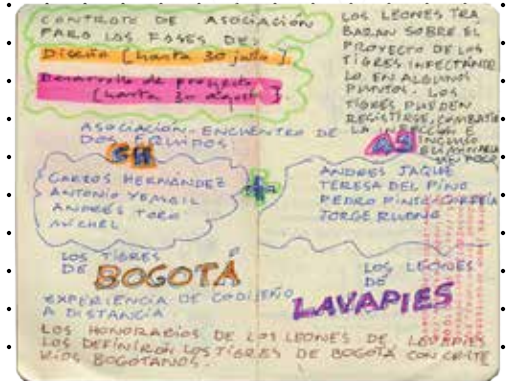 CONTRATO DE ASOCIACIÓN
PARA LAS FASES DE:
Diseño [hasta 30 julio].
Desarrollo de proyecto
[hasta 30 agosto].
LOS LEONES TRA
BARAN SOBRE EL
PROYECTO DE LOS
TIGRES INFECTANDO
LO EN ALGUNOS
PUNTOS. LOS
TIGRES PUEDEN
LA INFECCIÓN E
INCLUSO
UN POCO
ASOCIACIÓN-ENCUENTRO DE
DOS GRUPOS
CARLOS HERNANDEZ
ANTONIO YEMAIL
ANDRÉS TORO
MICHEL
+
ANDRES JAQUE
TERESA DEL PINO
PEDRO
JORGE
LOS TIGRES
DE BOGOTÁ
LOS LEONES
DE
LAVAPIES
EXPERIENCIA DE CODISEÑO
A DISTANCIA
LOS HONORARIOS DE LOS LEONES DE LAVAPIES
LOS DEFINIRÁN LOS TIGRES DE BOGOTÁ CON
BOGOTANOS.